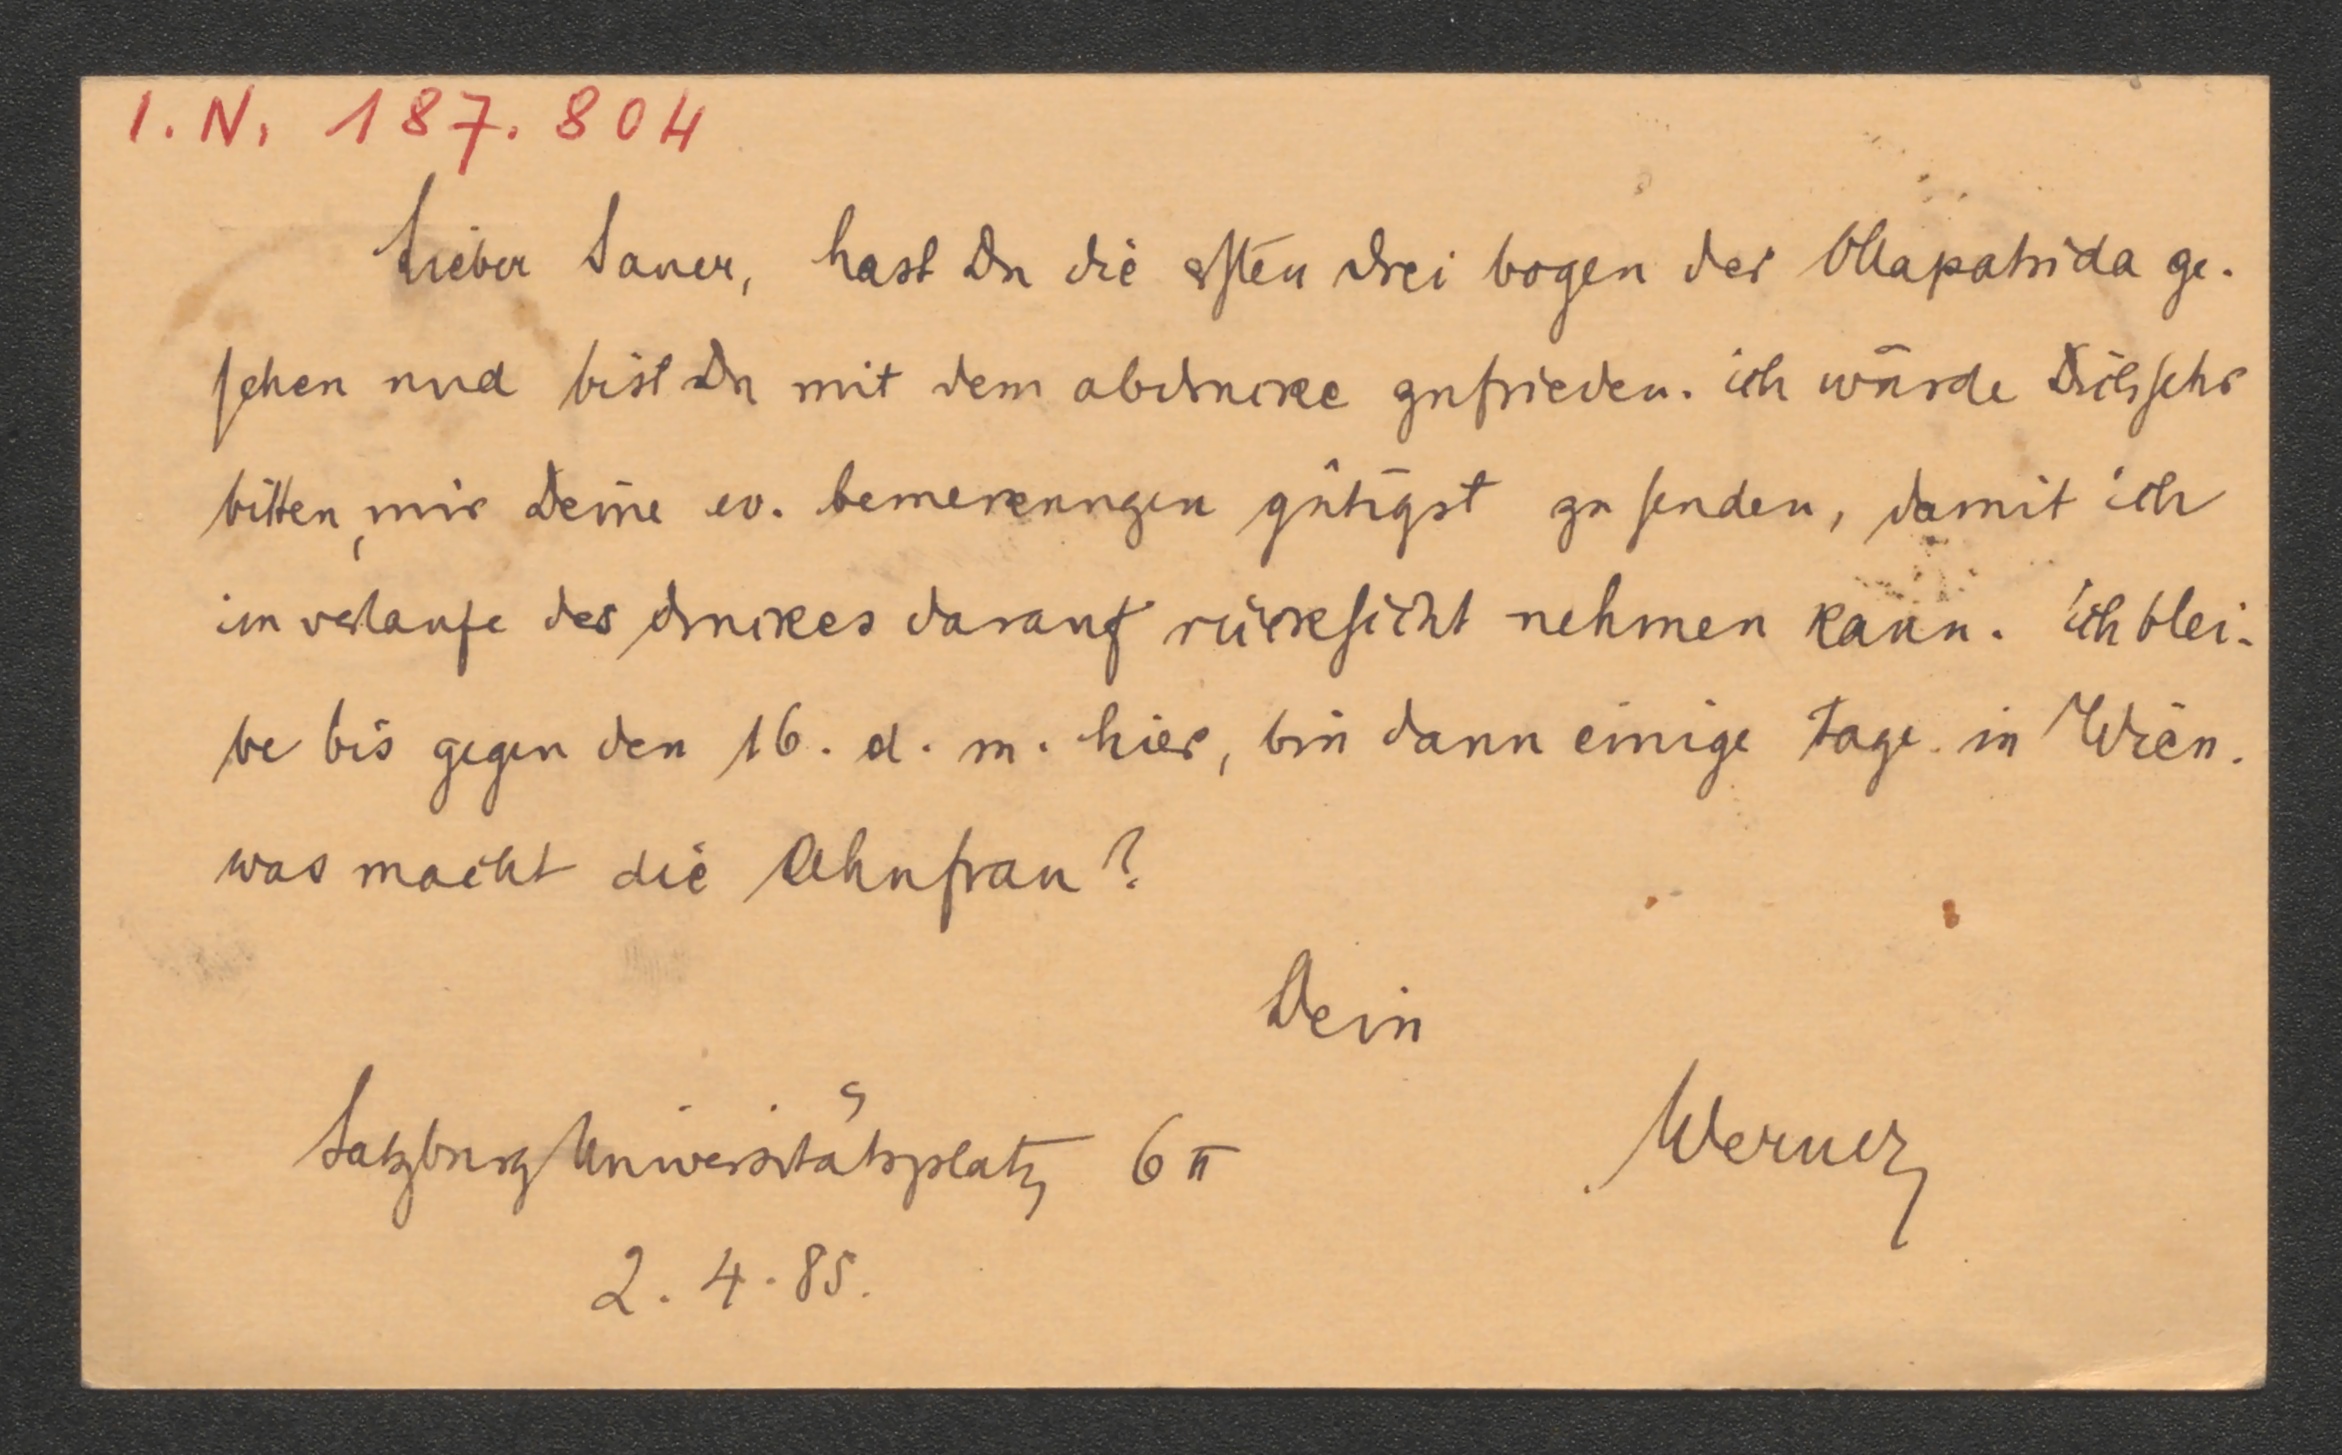 I. N. 187.804
Lieber Sauer, hast Du die ersten drei bogen der Ollapatrida ge-
sehen und bist Du mit dem abdrucke zufrieden. ich würde Dich sehr
bitten, mir Deine ev. bemerkungen gütigst zu senden, damit ich
im verlaufe des druckes darauf rücksicht nehmen kann. ich blei-
be bis gegen den 16. d. m. hier, bin dann einige Tage in Wien.
was macht die Ahnfrau?
Dein
Werner
Salzburg Universitätsplatz 6 II
2. 4. 85.